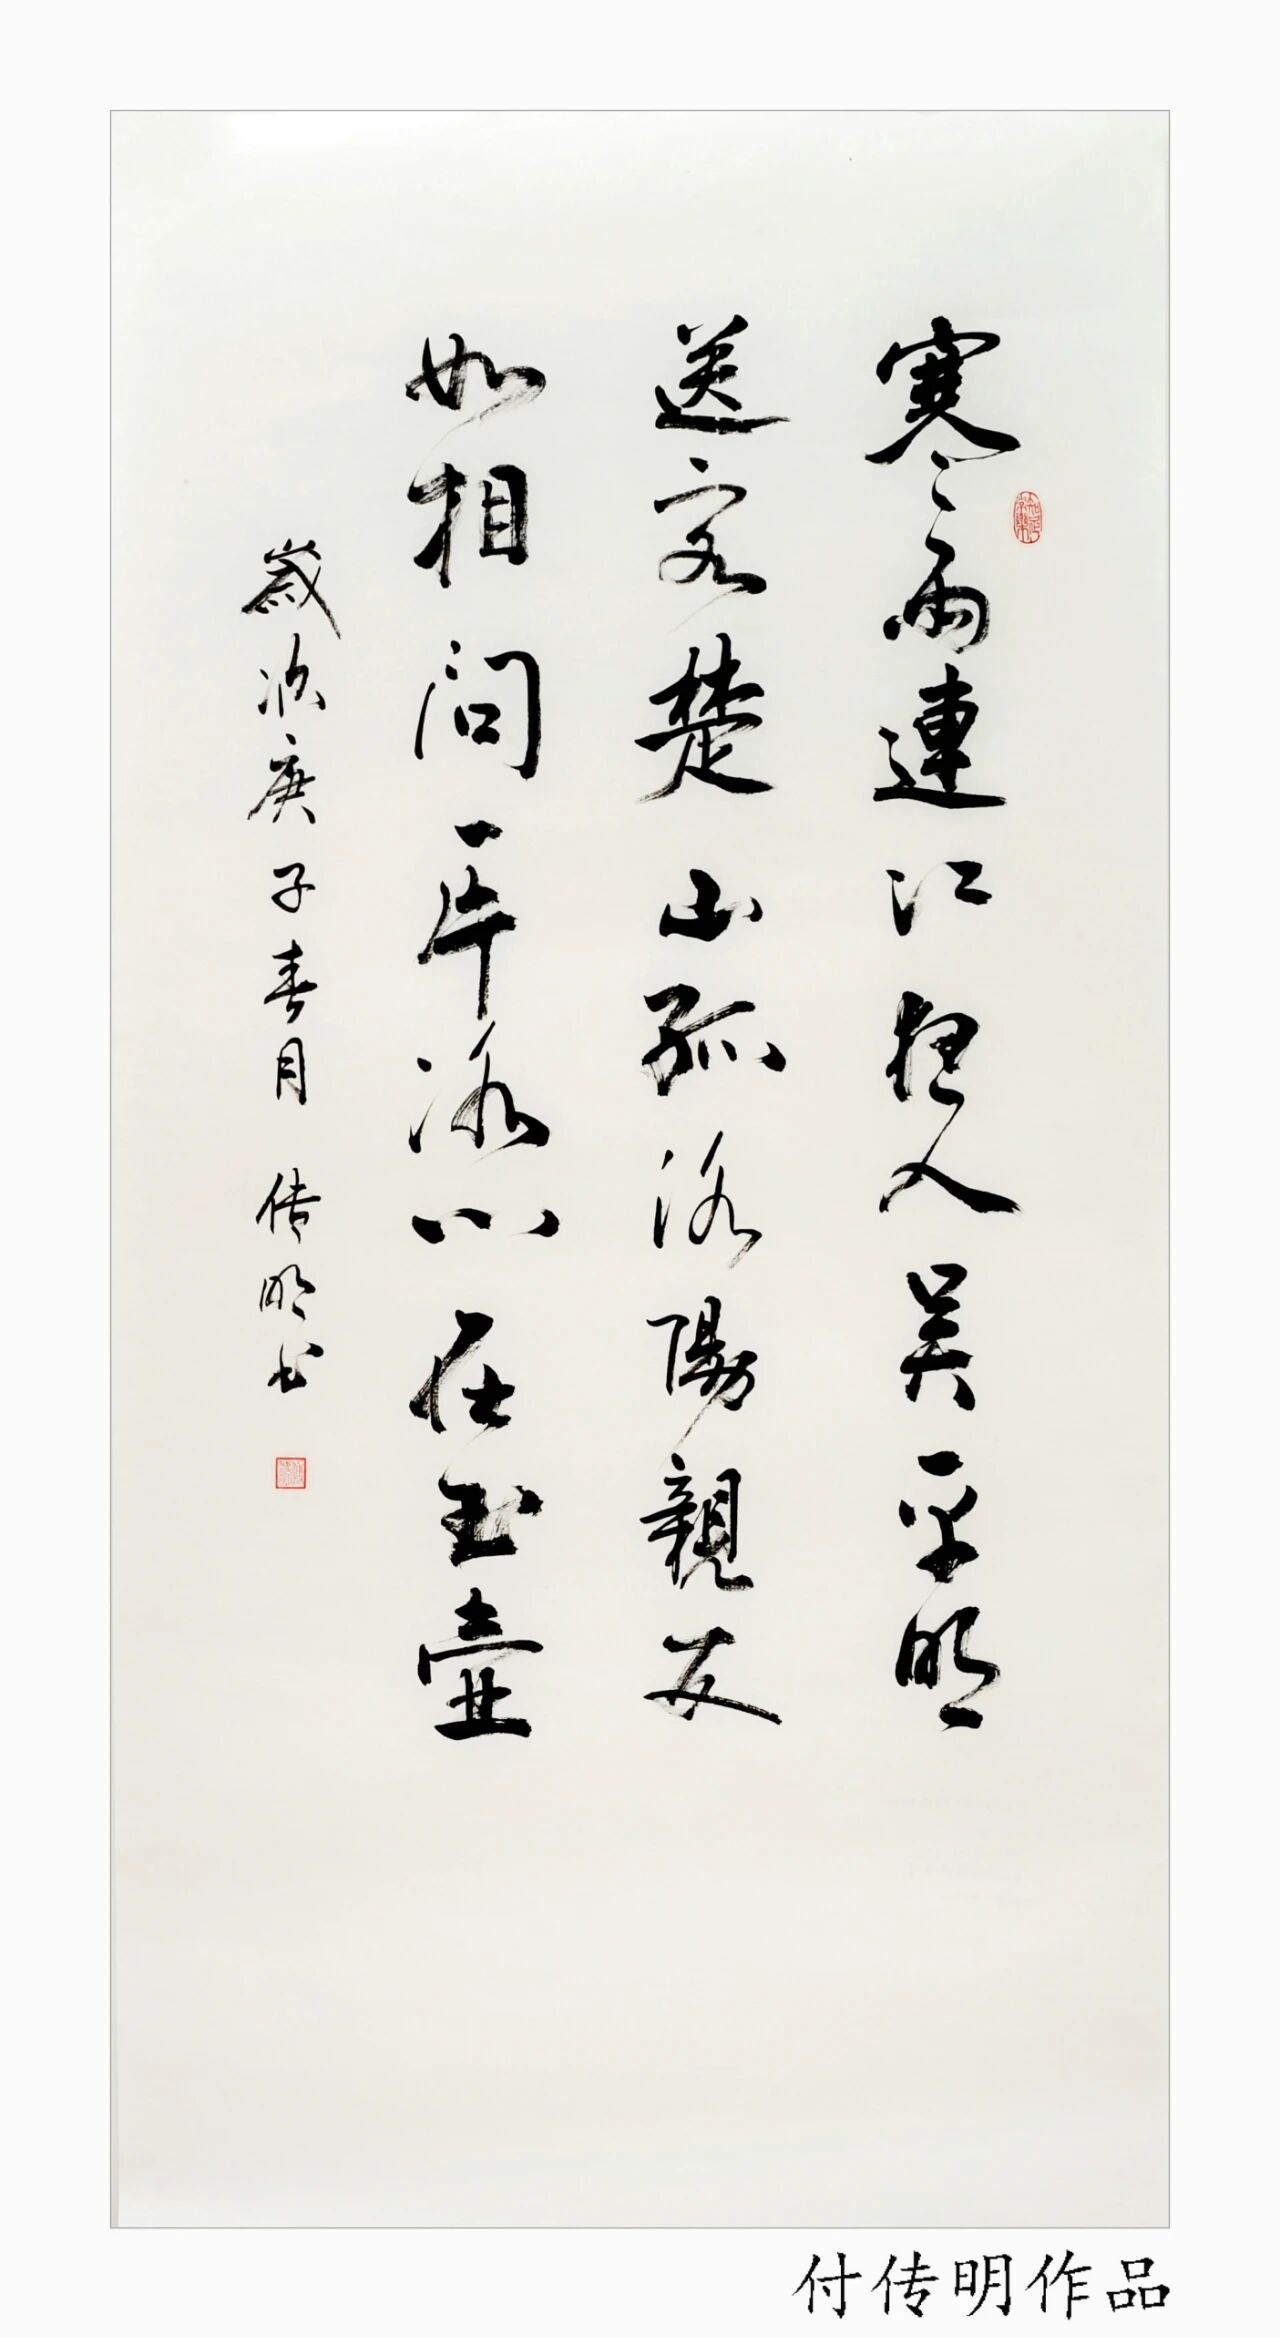 寒雨連江夜入吴平明
送客楚山孤洛陽親友
如相問一片冰心在玉壺
歲次庚子春月 传明书
付传明作品